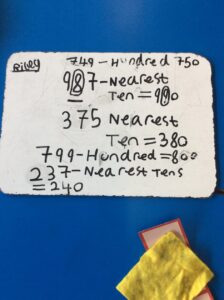 Riley
749 - Hundred 750
987 - Nearest
Ten = 990
375 Nearest
Ten = 380
799 - Hundred = 800
237 - Nearest Tens
= 240